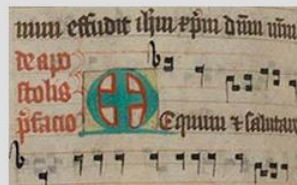 mun effudit ihm xpm dnm nrm
de apo
stolis
pfacio
Equum & salutar